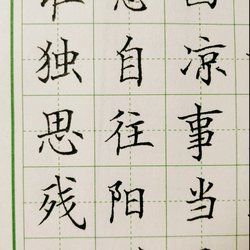 独自凉
思往事
残阳当